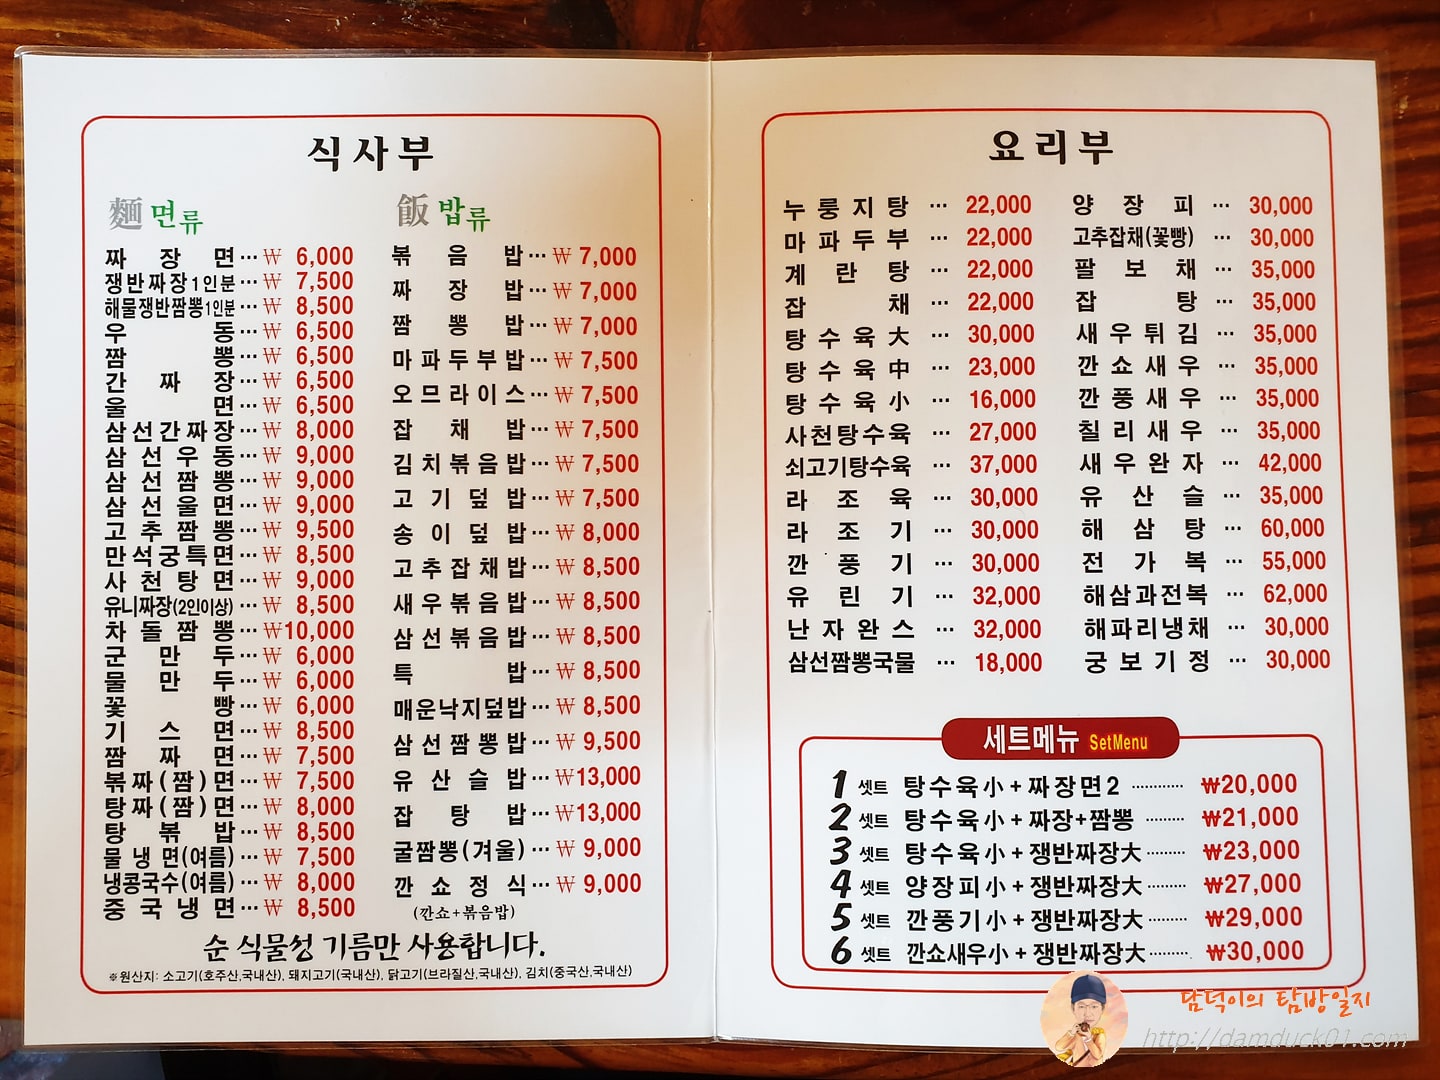 식사부
麵 면류
짜장면 ··· ₩ 6,000
쟁반짜장1인분 ··· ₩ 7,500
해물쟁반짬뽕1인분 ··· ₩ 8,500
우동 ··· ₩ 6,500
짬뽕 ··· ₩ 6,500
간짜장 ··· ₩ 6,500
울면 ··· ₩ 6,500
삼선간짜장 ··· ₩ 8,000
삼선우동 ··· ₩ 9,000
삼선짬뽕 ··· ₩ 9,000
삼선울면 ··· ₩ 9,000
고추짬뽕 ··· ₩ 9,500
만석궁특면 ··· ₩ 8,500
사천탕면 ··· ₩ 9,000
유니짜장(2인이상) ··· ₩ 8,500
차돌짬뽕 ··· ₩10,000
군만두 ··· ₩ 6,000
물만두 ··· ₩ 6,000
꽃빵 ··· ₩ 6,000
기스면 ··· ₩ 8,500
짬짜면 ··· ₩ 7,500
볶짜(짬)면 ··· ₩ 7,500
탕짜(짬)면 ··· ₩ 8,000
탕볶밥 ··· ₩ 8,500
물냉면(여름) ··· ₩ 7,500
냉콩국수(여름) ··· ₩ 8,000
중국냉면 ··· ₩ 8,500
飯 밥류
볶음밥 ··· ₩ 7,000
짜장밥 ··· ₩ 7,000
짬뽕밥 ··· ₩ 7,000
마파두부밥 ··· ₩ 7,500
오므라이스 ··· ₩ 7,500
잡채밥 ··· ₩ 7,500
김치볶음밥 ··· ₩ 7,500
고기덮밥 ··· ₩ 7,500
송이덮밥 ··· ₩ 8,000
고추잡채밥 ··· ₩ 8,500
새우볶음밥 ··· ₩ 8,500
삼선볶음밥 ··· ₩ 8,500
특밥 ··· ₩ 8,500
매운낙지덮밥 ··· ₩ 8,500
삼선짬뽕밥 ··· ₩ 9,500
유산슬밥 ··· ₩13,000
잡탕밥 ··· ₩13,000
굴짬뽕(겨울) ··· ₩ 9,000
깐쇼정식 ··· ₩ 9,000
(깐쇼+볶음밥)
순 식물성 기름만 사용합니다.
※원산지: 소고기(호주산,국내산), 돼지고기(국내산), 닭고기(브라질산,국내산), 김치(중국산,국내산)
요리부
누룽지탕 ··· 22,000
마파두부 ··· 22,000
계란탕 ··· 22,000
잡채 ··· 22,000
탕수육大 ··· 30,000
탕수육中 ··· 23,000
탕수육小 ··· 16,000
사천탕수육 ··· 27,000
쇠고기탕수육 ··· 37,000
라조육 ··· 30,000
라조기 ··· 30,000
깐풍기 ··· 30,000
유린기 ··· 32,000
난자완스 ··· 32,000
삼선짬뽕국물 ··· 18,000
양장피 ··· 30,000
고추잡채(꽃빵) ··· 30,000
팔보채 ··· 35,000
잡탕 ··· 35,000
새우튀김 ··· 35,000
깐쇼새우 ··· 35,000
깐풍새우 ··· 35,000
칠리새우 ··· 35,000
새우완자 ··· 42,000
유산슬 ··· 35,000
해삼탕 ··· 60,000
전가복 ··· 55,000
해삼과전복 ··· 62,000
해파리냉채 ··· 30,000
궁보기정 ··· 30,000
세트메뉴 SetMenu
1 셋트 탕수육小 + 짜장면2 ············ ₩20,000
2 셋트 탕수육小 + 짜장+짬뽕 ········· ₩21,000
3 셋트 탕수육小 + 쟁반짜장大 ········· ₩23,000
4 셋트 양장피小 + 쟁반짜장大 ········· ₩27,000
5 셋트 깐풍기小 + 쟁반짜장大 ········· ₩29,000
6 셋트 깐쇼새우小 + 쟁반짜장大 ········· ₩30,000
담덕이의 탐방일지
http://damduck01.com